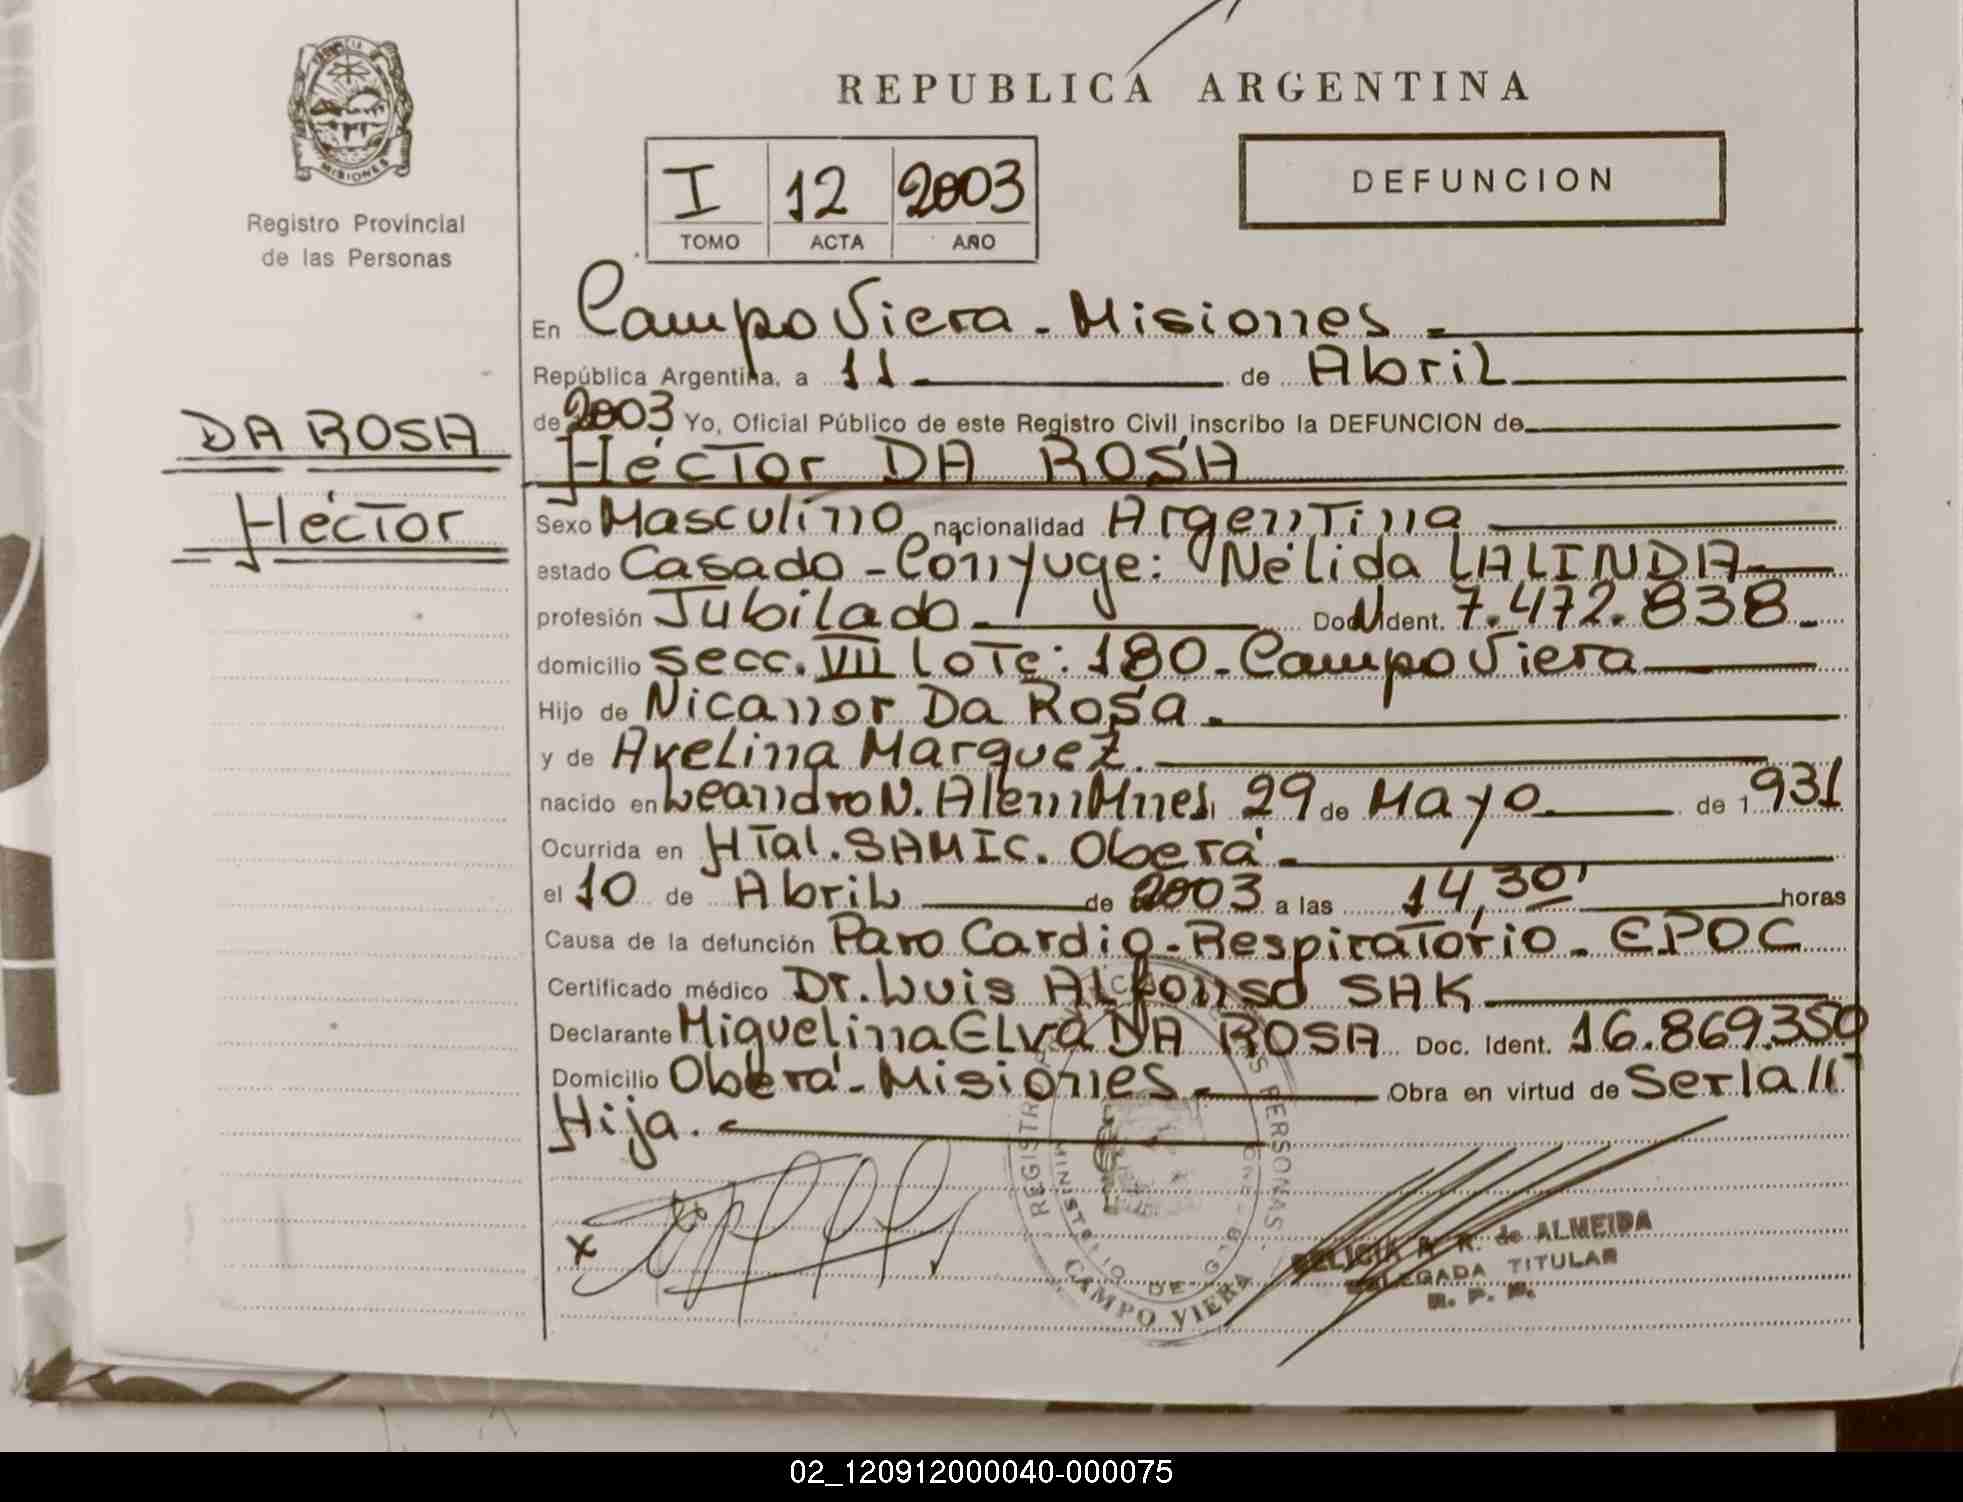 REPUBLICA ARGENTINA
MISIONES
Registro Provincial
de las Personas
I 12 2003
TOMO ACTA AÑO
DEFUNCION
En Campo Viera - Misiones
República Argentina, a 11 de Abril
de 2003 Yo, Oficial Público de este Registro Civil inscribo la DEFUNCION de
DA ROSA
Héctor
Héctor DA ROSA
Sexo Masculino nacionalidad Argentina
estado Casado - Cónyuge: Nélida LALINDA
profesión Jubilado Doc. Ident. 7.472.838
domicilio secc. VII lote: 180 - Campo Viera
Hijo de Nicanor Da Rosa
y de Avelina Marquez
nacido en Leandro N. Alem Mnes, 29 de Mayo de 1931
Ocurrida en HTal. SAMIC. Oberá
el 10 de Abril de 2003 a las 14,30' horas
Causa de la defunción Paro Cardio-Respiratorio - EPOC
Certificado médico Dr. Luis Alfonso SAK
Declarante Miguelina Elva DA ROSA Doc. Ident. 16.869.350
Domicilio Oberá - Misiones Obra en virtud de Ser la
Hija.
x
REGISTR PERSONAS
MINISTERIO DE GOB
CAMPO VIERA
DELICIA A. R. de ALMEIDA
DELEGADA TITULAR
R. P. P.
02_120912000040-000075